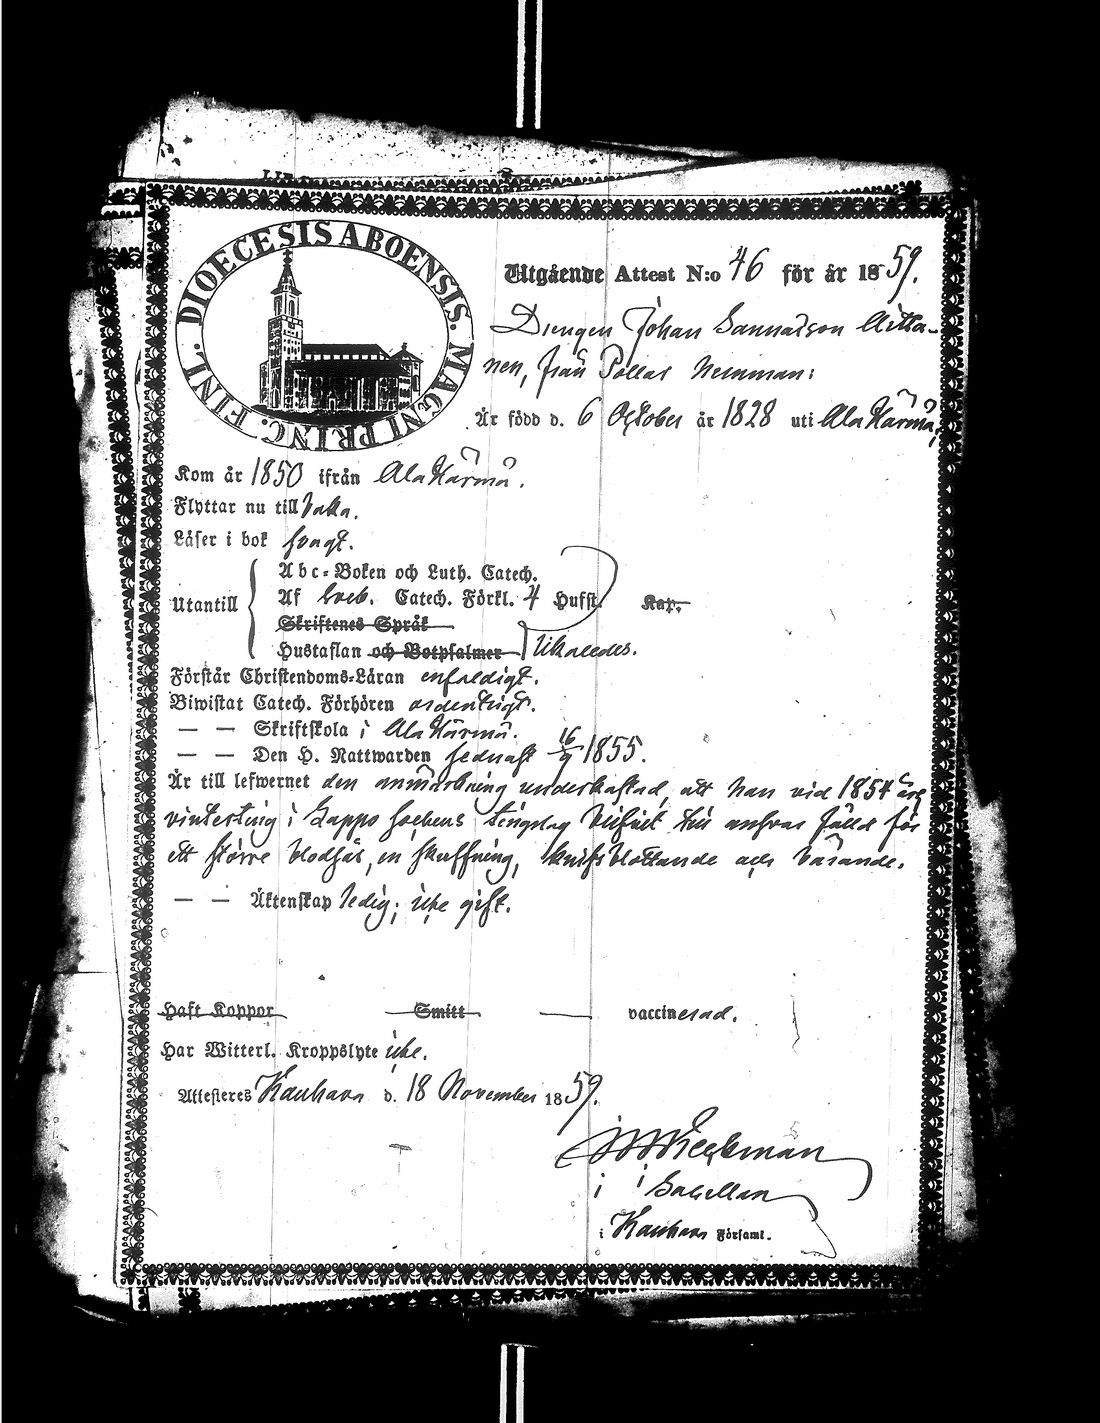 DIOECESIS ABOENSIS. MAGNI PRINC. FINL.
Utgående Attest N:o 46 för år 1859.
Drengen Johan Sannasson
nen, från
Är född d. 6 October år 1828 uti Ala Härmä,
Kom år 1850 ifrån Ala Härmä.
Flyttar nu till
Läser i bok svagt.
Utantill
Abc-Boken och Luth. Catech.
Af Sveb. Catech. Förkl. 4 Hufst. Kap.
Skriftenes Språk
Hustaflan och Botpsalmer likaledes.
Förstår Christendoms-Läran enfaldigt.
Biwistat Catech. Förhören ordentligt.
— — Skriftskola i Ala Härmä.
— — Den H. Nattwarden sednast 16/9 1855.
Är till lefwernet den anmärkning underkastad, att han vid 1854 års
vinterting i Lappo Sockens tingslag blifvit till ansvar fälld för
ett större blodsår, en skuffning, knifsblottande och bärande.
— — Äktenskap ledig; icke gift.
Haft Koppor Smitt vaccinerad.
Har Witterl. Kroppslyte icke.
Attesteres Kauhava d. 18 November 1859.
i Kauhava Församl.